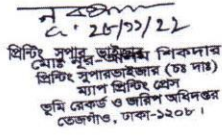 ২৮/১১/২২
মোঃ নূর-আলম শিকদার
প্রিন্টিং সুপারভাইজার (চঃ দাঃ)
ম্যাপ প্রিন্টিং প্রেস
ভূমি রেকর্ড ও জরিপ অধিদপ্তর
তেজগাঁও, ঢাকা-১২০৮।